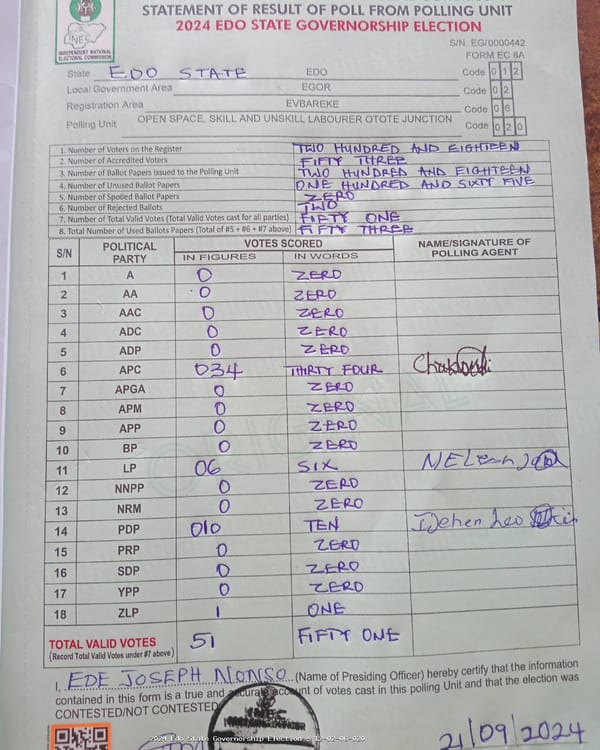 STATEMENT OF RESULT OF POLL FROM POLLING UNIT
2024 EDO STATE GOVERNORSHIP ELECTION
INEC
INDEPENDENT NATIONAL
ELECTORAL COMMISSION
S/N. EG/0000442
FORM EC 8A
State EDO STATE EDO Code 0 1 2
Local Government Area EGOR Code 0 2
Registration Area EVBAREKE Code 0 6
Polling Unit OPEN SPACE, SKILL AND UNSKILL LABOURER OTOTE JUNCTION Code 0 2 0
1. Number of Voters on the Register TWO HUNDRED AND EIGHTEEN
2. Number of Accredited Voters FIFTY THREE
3. Number of Ballot Papers Issued to the Polling Unit TWO HUNDRED AND EIGHTEEN
4. Number of Unused Ballot Papers ONE HUNDRED AND SIXTY FIVE
5. Number of Spoiled Ballot Papers ZERO
6. Number of Rejected Ballots TWO
7. Number of Total Valid Votes (Total Valid Votes cast for all parties) FIFTY ONE
8. Total Number of Used Ballots Papers (Total of #5 + #6 + #7 above) FIFTY THREE
S/N POLITICAL PARTY VOTES SCORED NAME/SIGNATURE OF POLLING AGENT
IN FIGURES IN WORDS
1 A 0 ZERO
2 AA 0 ZERO
3 AAC 0 ZERO
4 ADC 0 ZERO
5 ADP 0 ZERO
6 APC 034 THIRTY FOUR
7 APGA 0 ZERO
8 APM 0 ZERO
9 APP 0 ZERO
10 BP 0 ZERO
11 LP 06 SIX
12 NNPP 0 ZERO
13 NRM 0 ZERO
14 PDP 010 TEN Idehen Leo
15 PRP 0 ZERO
16 SDP 0 ZERO
17 YPP 0 ZERO
18 ZLP 1 ONE
TOTAL VALID VOTES 51 FIFTY ONE
(Record Total Valid Votes under #7 above)
I, EDE JOSEPH NONSO (Name of Presiding Officer) hereby certify that the information
contained in this form is a true and accurate account of votes cast in this polling Unit and that the election was
CONTESTED/NOT CONTESTED
2024 Edo State Governorship Election - 12-02-06-020
21/09/2024